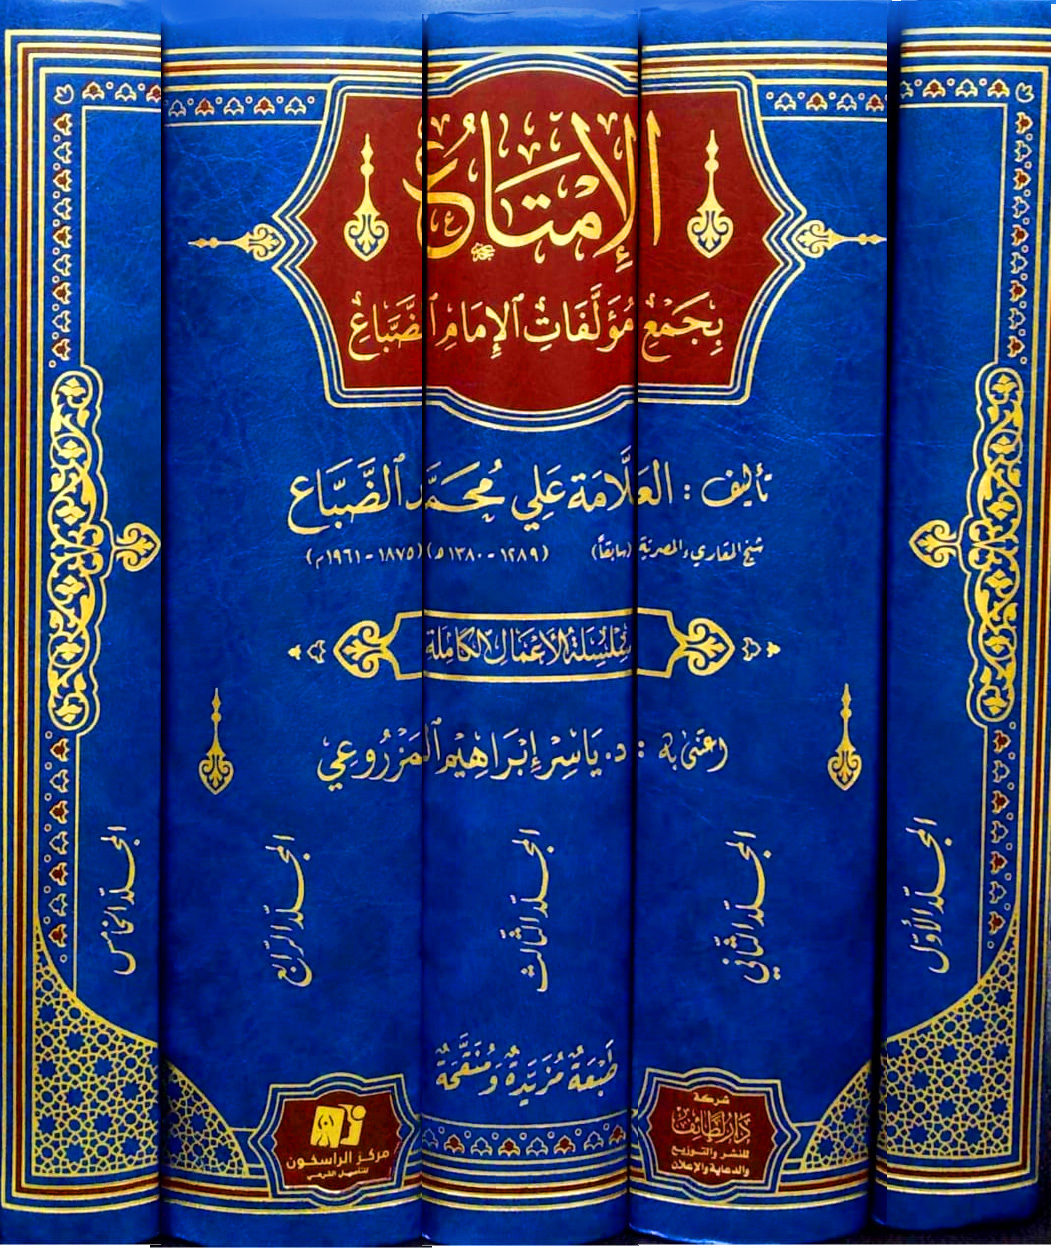 الإمتاع
بجمع مؤلفات الإمام الضباع
تأليف : العلامة علي محمد الضباع
شيخ المقارئ المصرية (سابقاً) (١٢٨٩ - ١٣٨٠ هـ) (١٨٧٥ - ١٩٦١ م)
سلسلة الأعمال الكاملة
اعتنى به : د. ياسر إبراهيم المزروعي
المجلد الأول
المجلد الثاني
المجلد الثالث
المجلد الرابع
المجلد الخامس
طبعة مزيدة ومنقحة
شركة
دار اللطائف
للنشر والتوزيع
والدعاية والإعلان
مركز الراسخون
للتأصيل الشرعي